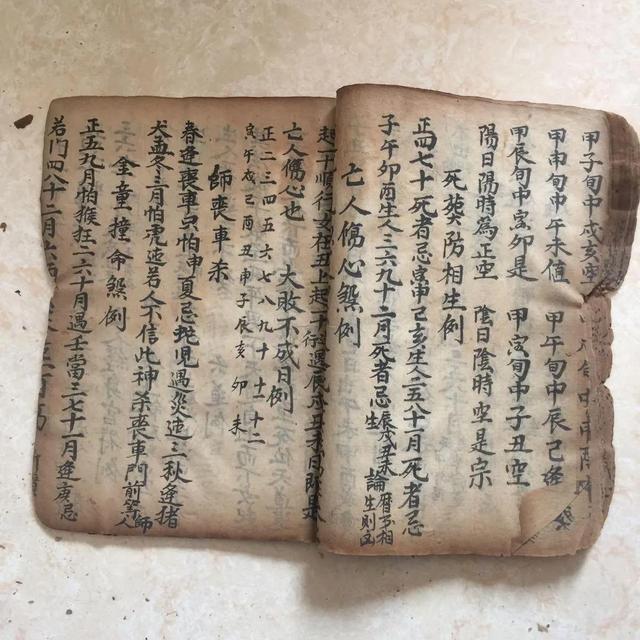 甲子旬中戌亥空
甲申旬中午未值 甲午旬中辰巳
甲辰旬中寅卯是 甲寅旬中子丑空
陽日陽時為正空 陰日陰時空是宗
死葬防相生例
正四七十死者忌寅申巳亥生人二五八十月死者忌
子午卯酉生人三六九十二月死者忌辰戌丑未生 論曆多相生則凶
亡人傷心煞例
亡人傷心也 大敗不成日例
正二三四五六七八九十十一十二
寅午戌巳酉丑申子辰亥卯未
師喪車
春逢喪車虫怕申夏忌蛇児遇災迍三秋逢猪
犬並冬三月怕虎迍若人不信此神杀喪車門前哭師人
金童撞命煞例
正五九月怕猴狂二六十月遇壬當三七十一月逢庚忌
若門四八十二月